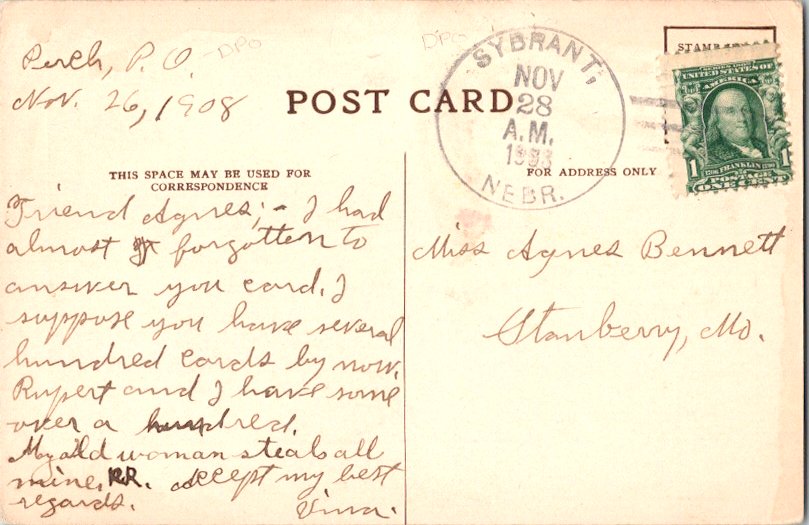 Perch, P. O. -DPO
Nov. 26, 1908
DPO
POST CARD
SYBRANT,
NOV
28
A.M.
NEBR.
STAMP
SERIES 1902
UNITED STATES OF
AMERICA
1 1
1706 FRANKLIN 1790
POSTAGE
ONE CENT
THIS SPACE MAY BE USED FOR
CORRESPONDENCE
FOR ADDRESS ONLY
Friend Agnes; - I had
almost forgotten to
answer you card. I
suppose you have several
hundred cards by now.
Rupert and I have some
over a hundred.
My old woman steals all
mine. RR. accept my best
regards. Vina.
Miss Agnes Bennett
Stanberry, Mo.